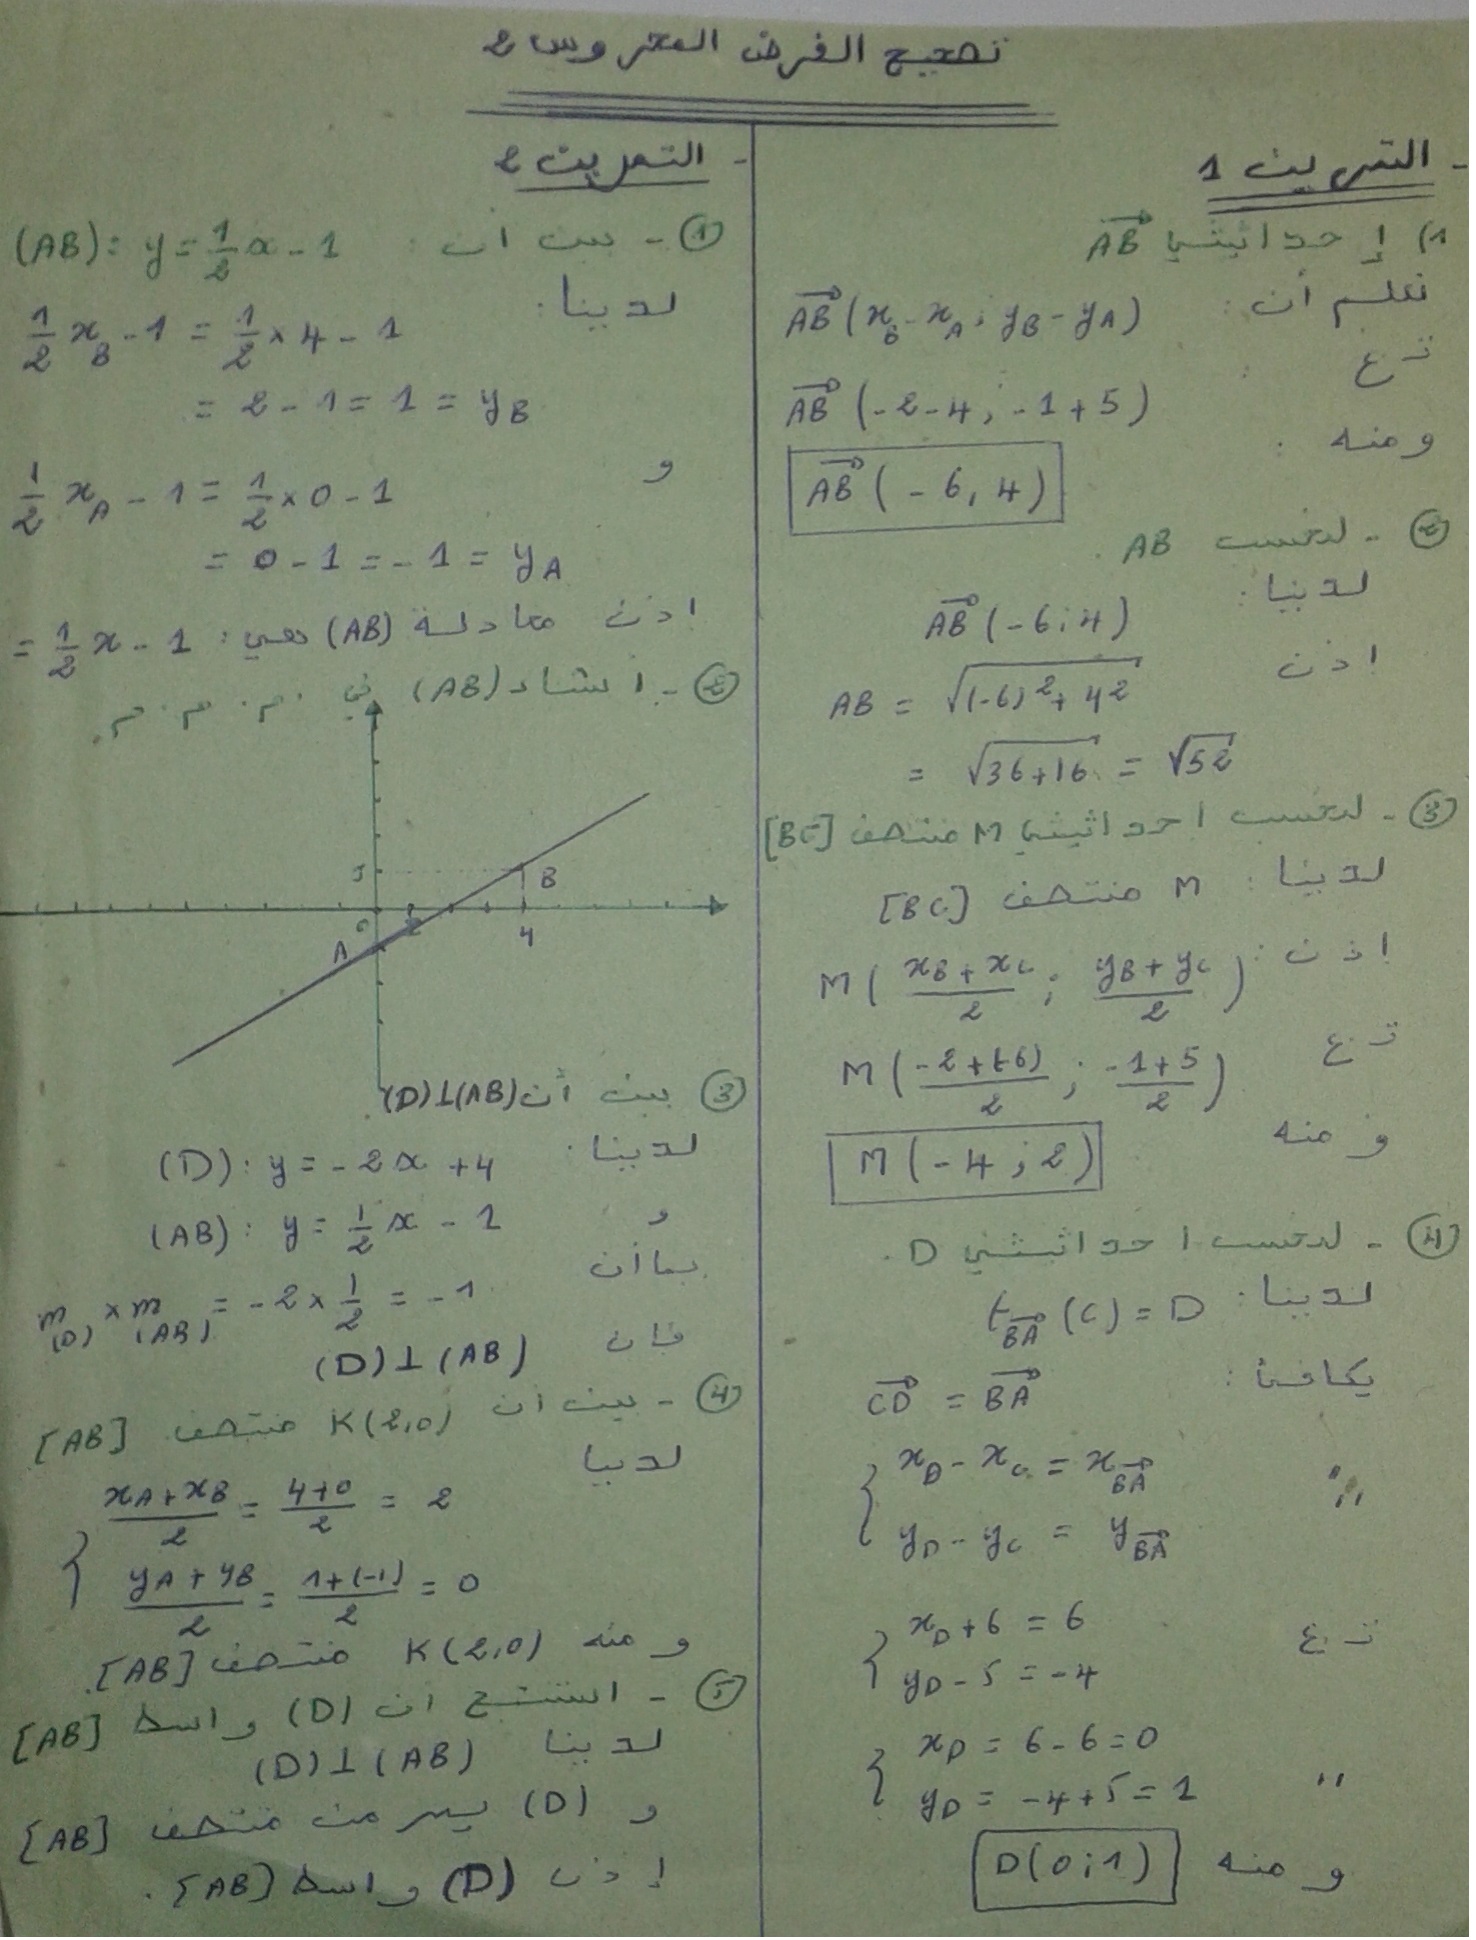 تصحيح الفرض المحروس 2
- التمرين 1
1) إحداثيتي AB
نعلم أن: AB(x_B - x_A ; y_B - y_A)
ت ع : AB(-2-4 ; -1+5)
ومنه : AB(-6, 4)
② - لنحسب AB.
لدينا: AB(-6;4)
اذن AB = √((-6)² + 4²)
= √(36+16) = √52
③ - لنحسب احداثيتي M منتصف [BC]
لدينا: M منتصف [BC]
اذن: M( (x_B + x_C)/2 ; (y_B + y_C)/2 )
ت ع M( (-2+(-6))/2 ; (-1+5)/2 )
ومنه M(-4 ; 2)
④ - لنحسب احداثيتي D.
لدينا: t_BA (C) = D
يكافئ: CD = BA
" { x_D - x_C = x_BA
y_D - y_C = y_BA
ت ع { x_D + 6 = 6
y_D - 5 = -4
" { x_D = 6 - 6 = 0
y_D = -4 + 5 = 1
ومنه D(0;1)
- التمرين 2
① - بين ان: (AB): y = 1/2 x - 1
لدينا: 1/2 x_B - 1 = 1/2 × 4 - 1
= 2 - 1 = 1 = y_B
و 1/2 x_A - 1 = 1/2 × 0 - 1
= 0 - 1 = -1 = y_A
اذن معادلة (AB) هي: = 1/2 x - 1
② - انشاء (AB) في م. م. م.
J B
O 4
A
③ بين أن (D)⊥(AB)
لدينا: (D): y = -2x + 4
و (AB): y = 1/2 x - 1
بما أن m_(D) × m_(AB) = -2 × 1/2 = -1
فان (D) ⊥ (AB)
④ - بين ان K(2,0) منتصف [AB]
لدينا
{ (x_A + x_B)/2 = (4+0)/2 = 2
(y_A + y_B)/2 = (1+(-1))/2 = 0
ومنه K(2,0) منتصف [AB].
⑤ - استنتج ان (D) واسط [AB]
لدينا (D) ⊥ (AB)
و (D) يمر من منتصف [AB]
إذن (D) واسط [AB].